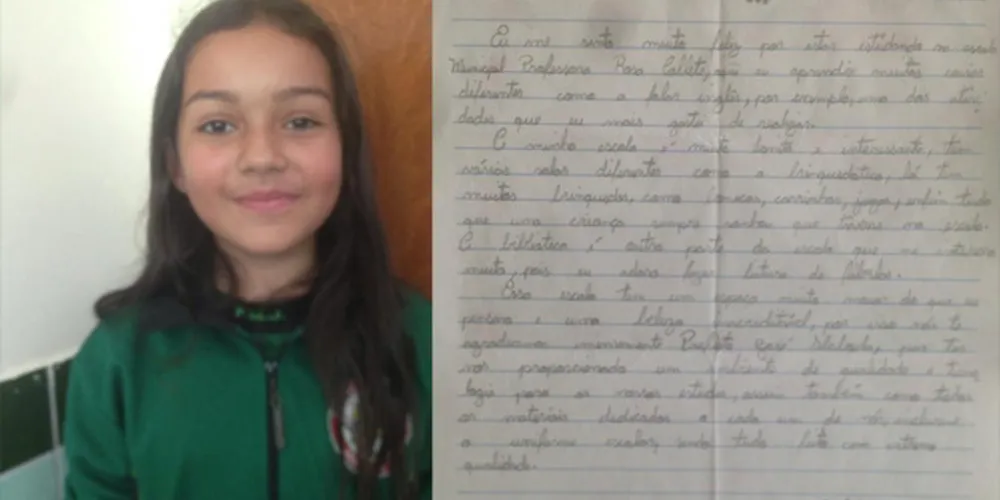 Eu me sinto muito feliz por estar estudando na escola
Municipal Professora Rosa que eu aprendi muitas coisas
diferentes como a falar inglês, por exemplo, uma das ativi-
dades que eu mais gostei de realizar.
A minha escola é muito bonita e interessante, tem
várias salas diferentes como a brinquedoteca, lá tem
muitos brinquedos, como bonecas, carrinhos, jogos, enfim tudo
que uma criança sempre sonhou que tivesse na escola.
A biblioteca é outra parte da escola que me
muito, pois eu adoro fazer leitura de
Essa escola tem um espaço muito maior do que eu
pensava e uma beleza por isso nós te
agradecemos imensamente Prefeito José por ter
nos proporcionado um ambiente de qualidade e tecno
logia para os nossos estudos, assim também como todos
os materiais dedicados a cada um de nós, inclusive
o uniforme escolar, sendo tudo feito com extrema
qualidade.